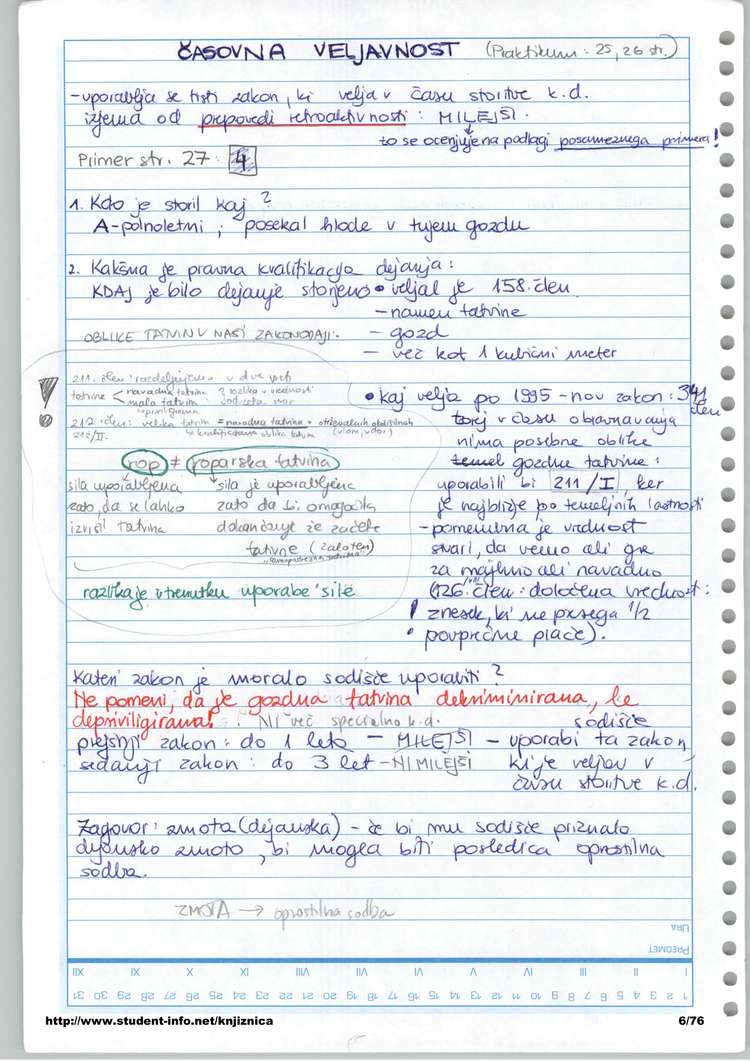 ČASOVNA VELJAVNOST (Praktikum: 25, 26 str.)
- uporablja se tisti zakon, ki velja v času storitve k.d.
izjema od prepovedi retroaktivnosti: MILEJŠI.
to se ocenjuje na podlagi posameznega primera!
Primer str. 27: 4
1. Kdo je storil kaj?
A-polnoletni; posekal hlode v tujem gozdu
2. Kakšna je pravna kvalifikacija dejanja:
KDAJ je bilo dejanje storjeno • veljal je 158. člen
- namen tatvine
OBLIKE TATVIN V NAŠI ZAKONODAJI:
- gozd
- več kot 1 kubični meter
211. člen: razdeljujemo v dve vrsti
tatvine < navadna tatvina
mala tatvina
} razlika v vrednosti
odvzete
privilegirana
212. člen: velika tatvina = navadna tatvina +
212/II.
kvalificirana oblika tatvin (vlom, vdor)
rop ≠ roparska tatvina
sila uporabljena
zato, da se lahko
izvrši tatvina
sila je uporabljena
zato da bi omogočila
dokončanje že začete
tatvine (zaloten)
razlika je v trenutku uporabe sile
• kaj velja po 1995 - nov zakon: 341
člen
torej v času obravnavanja
nima posebne oblike
temel gozdne tatvine:
uporabili bi 211/I, ker
je najbližje po temeljnih lastnosti
- pomembna je vrednost
stvari, da vemo ali gre
za majhno ali navadno
(126. člen: določena vrednost:
! znesek, ki ne presega 1/2
povprečne plače).
Kateri zakon je moralo sodišče uporabiti?
Ne pomeni, da je gozdna tatvina dekriminirana, le
depriviligirana! Ni več specialno k.d.
prejšnji zakon: do 1 leto - MILEJŠI - sodišče uporabi ta zakon
sedanji zakon: do 3 let - NI MILEJŠI ki je veljav v
času storitve k.d.
Zagovor: zmota (dejanska) - če bi mu sodišče priznalo
dejansko zmoto, bi mogla biti posledica oprostilna
sodba.
ZMOTA → oprostilna sodba
URA
PREDMET
I II III IV V VI VII VIII IX X XI XII
1 2 3 4 5 6 7 8 9 10 11 12 13 14 15 16 17 18 19 20 21 22 23 24 25 26 27 28 29 30 31
http://www.student-info.net/knjiznica 6/76